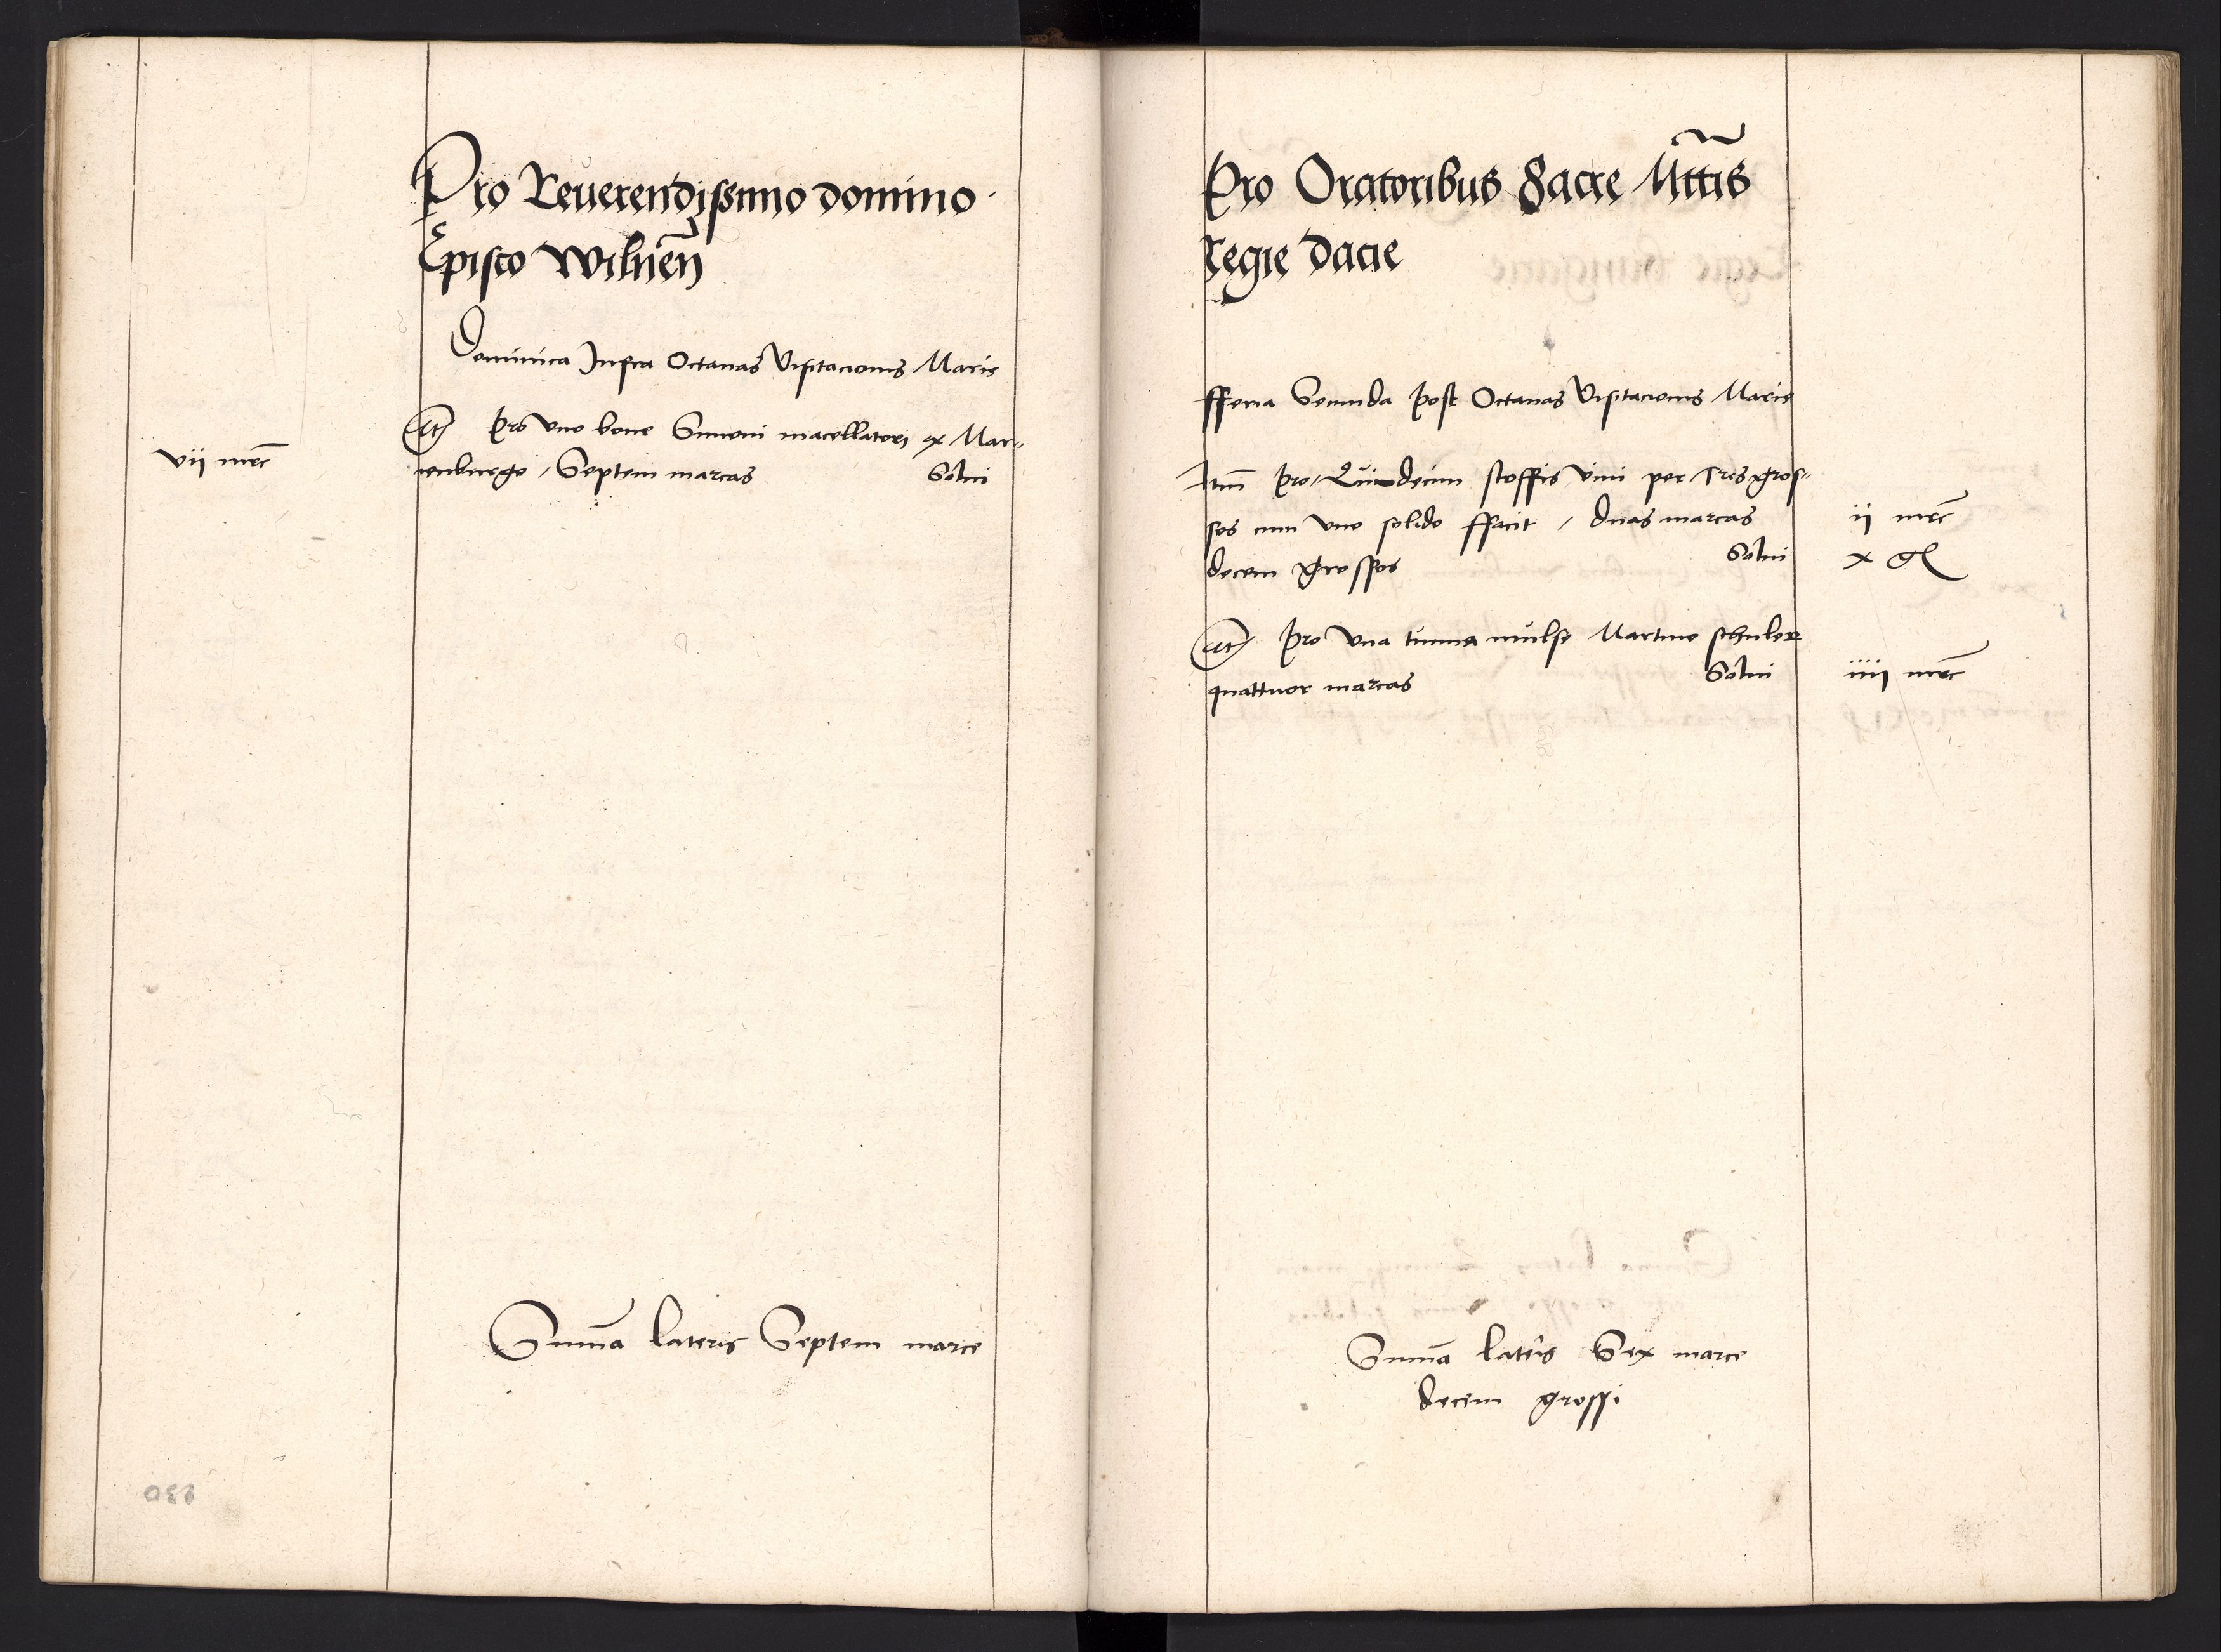 Pro Reuerendissimo domino
Episco Wilnen̄
Dominica Infra Octauas Visitacionis Marie
It Pro vno boue Simoni macellatori ex Mar-
ienburgo / Septem marcas Solui
vii mrc̄
Sum̄a lateris Septem marce
Pro Oratoribus Sacre Mttis̄
Regie dacie
fferia Secunda post Octauas Visitacionis Marie
Itm̄ pro / Quindecim stoffis vini per Tres gros-
sos cum vno solido ffacit / duas marcas ii mrc̄
decem grossos Solui x gl
It pro vna tunna mulse Martino schuler
quattuor marcas Solui iiii mrc̄
Sum̄a lateris Sex marce
decem grossi